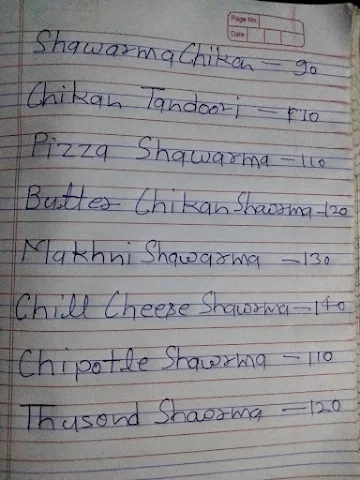 Page No.
Date
Shawarma Chikan - 90
Chikan Tandoori - 110
Pizza Shawarma - 110
Butter Chikan Shaorma - 120
Makhni Shawarma - 130
Chill Cheese Shawrma - 140
Chipotle Shawrma - 110
Thusond Shaorma - 120